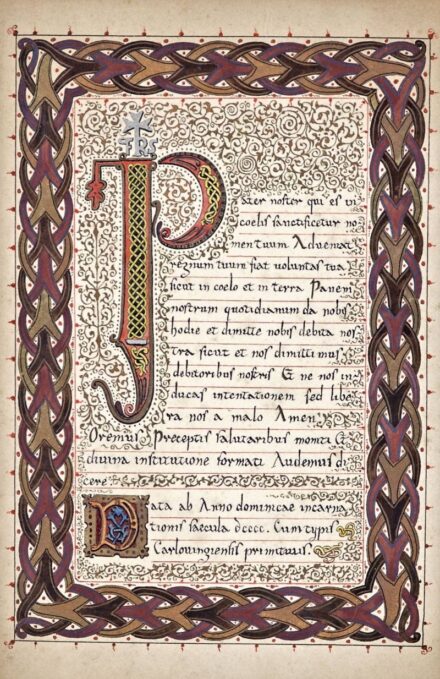 Pater noſter qui es in
coelis ſanctificetur no
men tuum Adveniat
regnum tuum fiat voluntas tua
ſicut in coelo et in terra Panem
noſtrum quotidianum da nobis
hodie et dimitte nobis debita nos
tra ſicut et nos dimittimus
debitoribus noſtris Et ne nos in
ducas intentationem ſed libe
ra nos a malo Amen
Oremus Preceptis ſalutaribus moniti Et
divina inſtitutione formati Audemus di
cere
Data ab Anno dominicae incarna
tionis ſaecula dcccc. Cum typis
Carlovingienſis primitivis.